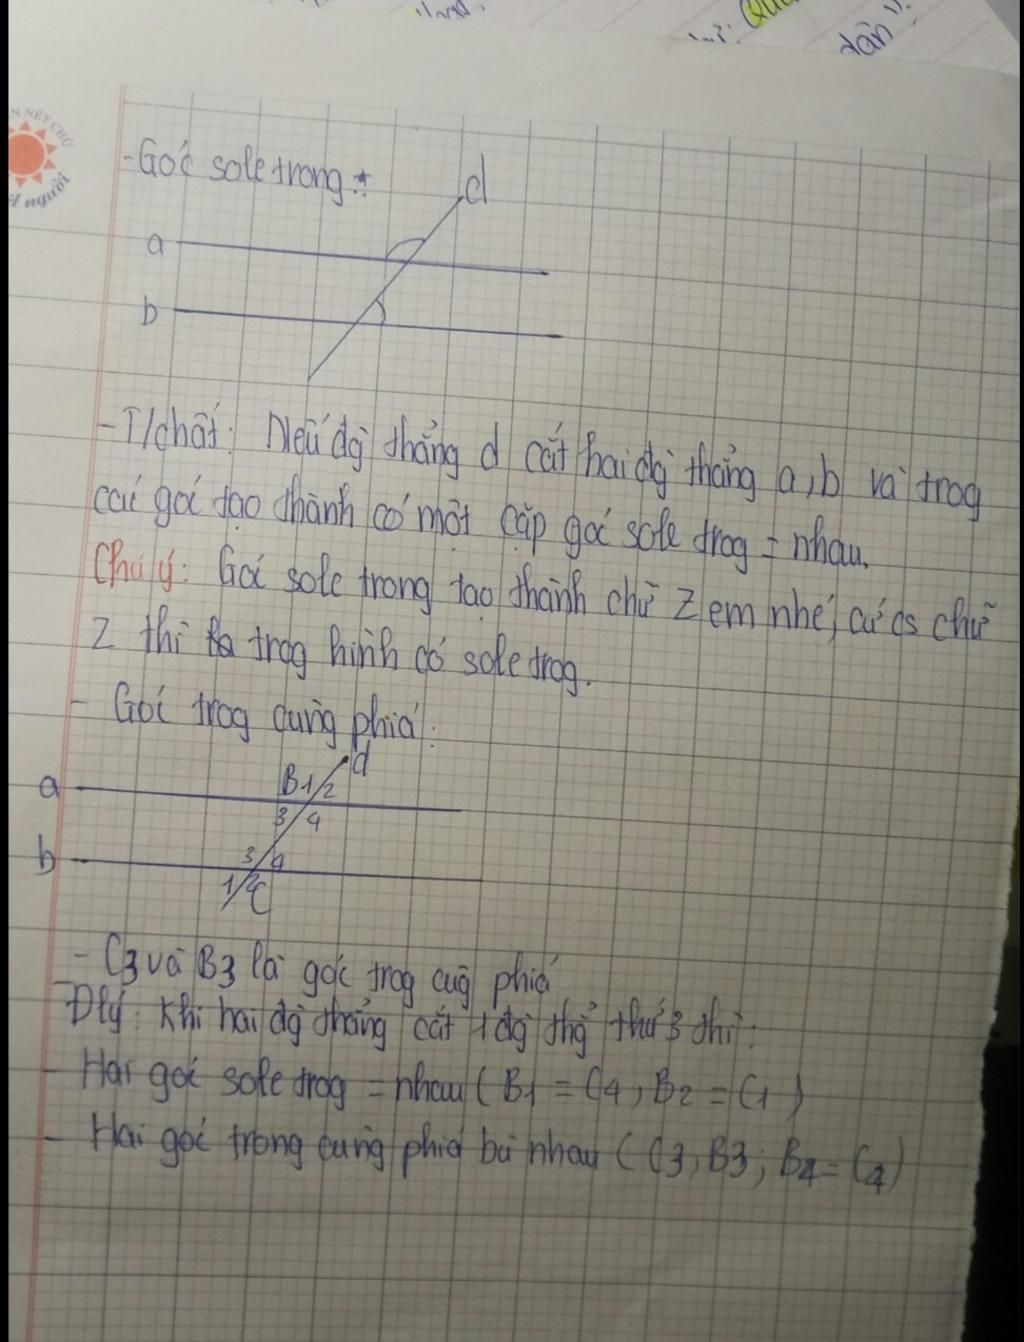 dân".
N NÉT CHỮ
t người
- Góc sole trong:
d
a
b
- T/chất: Nếu đg thẳng d cắt hai đg thẳng a, b và trog
các góc tạo thành có một cặp góc sole trog = nhau.
Chú ý: Góc sole trong tạo thành chữ Z em nhé, cứ cs chữ
Z thì trog hình có sole trog.
- Góc trog cùng phía:
d
a B1/2
3/4
b 3/4
1/2 C
- C3 và B3 là góc trog cùg phía
Đlý: Khi hai đg thẳng cắt 1 đg thg thứ 3 thì:
- Hai góc sole trog = nhau (B1 = C4, B2 = C1)
- Hai góc trong cùng phía bù nhau (C3, B3; B4 = C4)